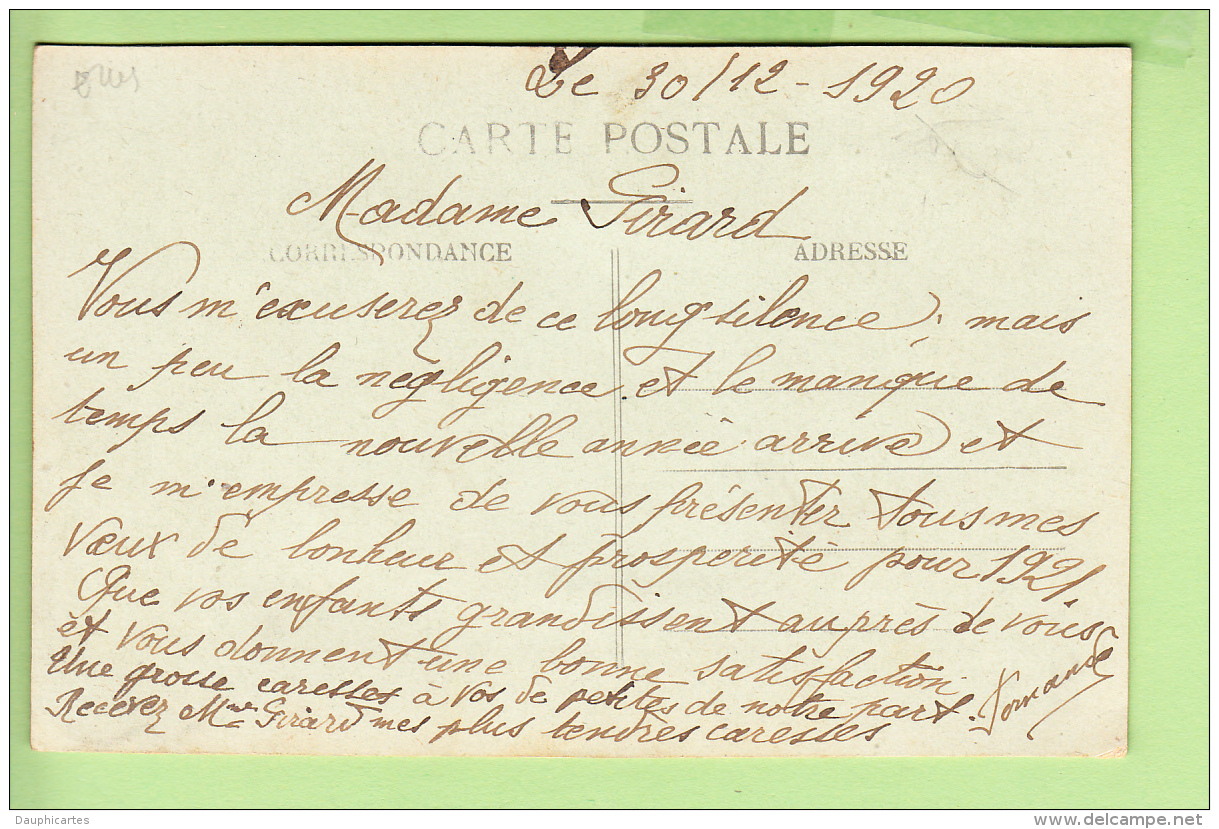 Le 30/12-1920
CARTE POSTALE
Madame Girard
CORRESPONDANCE
ADRESSE
Vous m'excuserez de ce long silence, mais
un peu la négligence et le manque de
temps la nouvelle année arrive et
je m'empresse de vous présenter tous mes
vœux de bonheur et prosperité pour 1921,
Que vos enfants grandissent auprès de vous
et vous donnent une bonne satisfaction
Une grosse caresses à vos de petites de notre part.
Recevez Mme Girard mes plus tendres caresses
Dauphicartes
delcampe.net